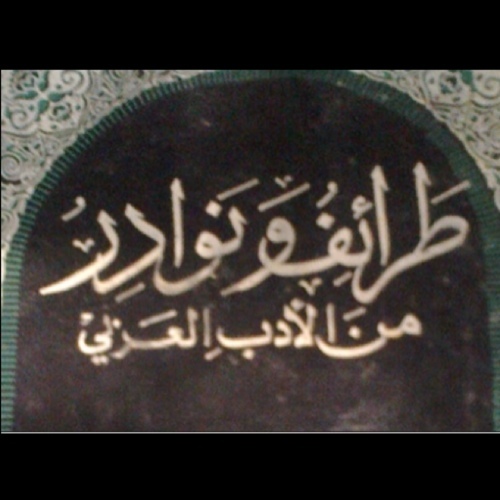 طَرائِفُ وَنَوادِرُ
مِنَ الأَدَبِ العَرَبيْ